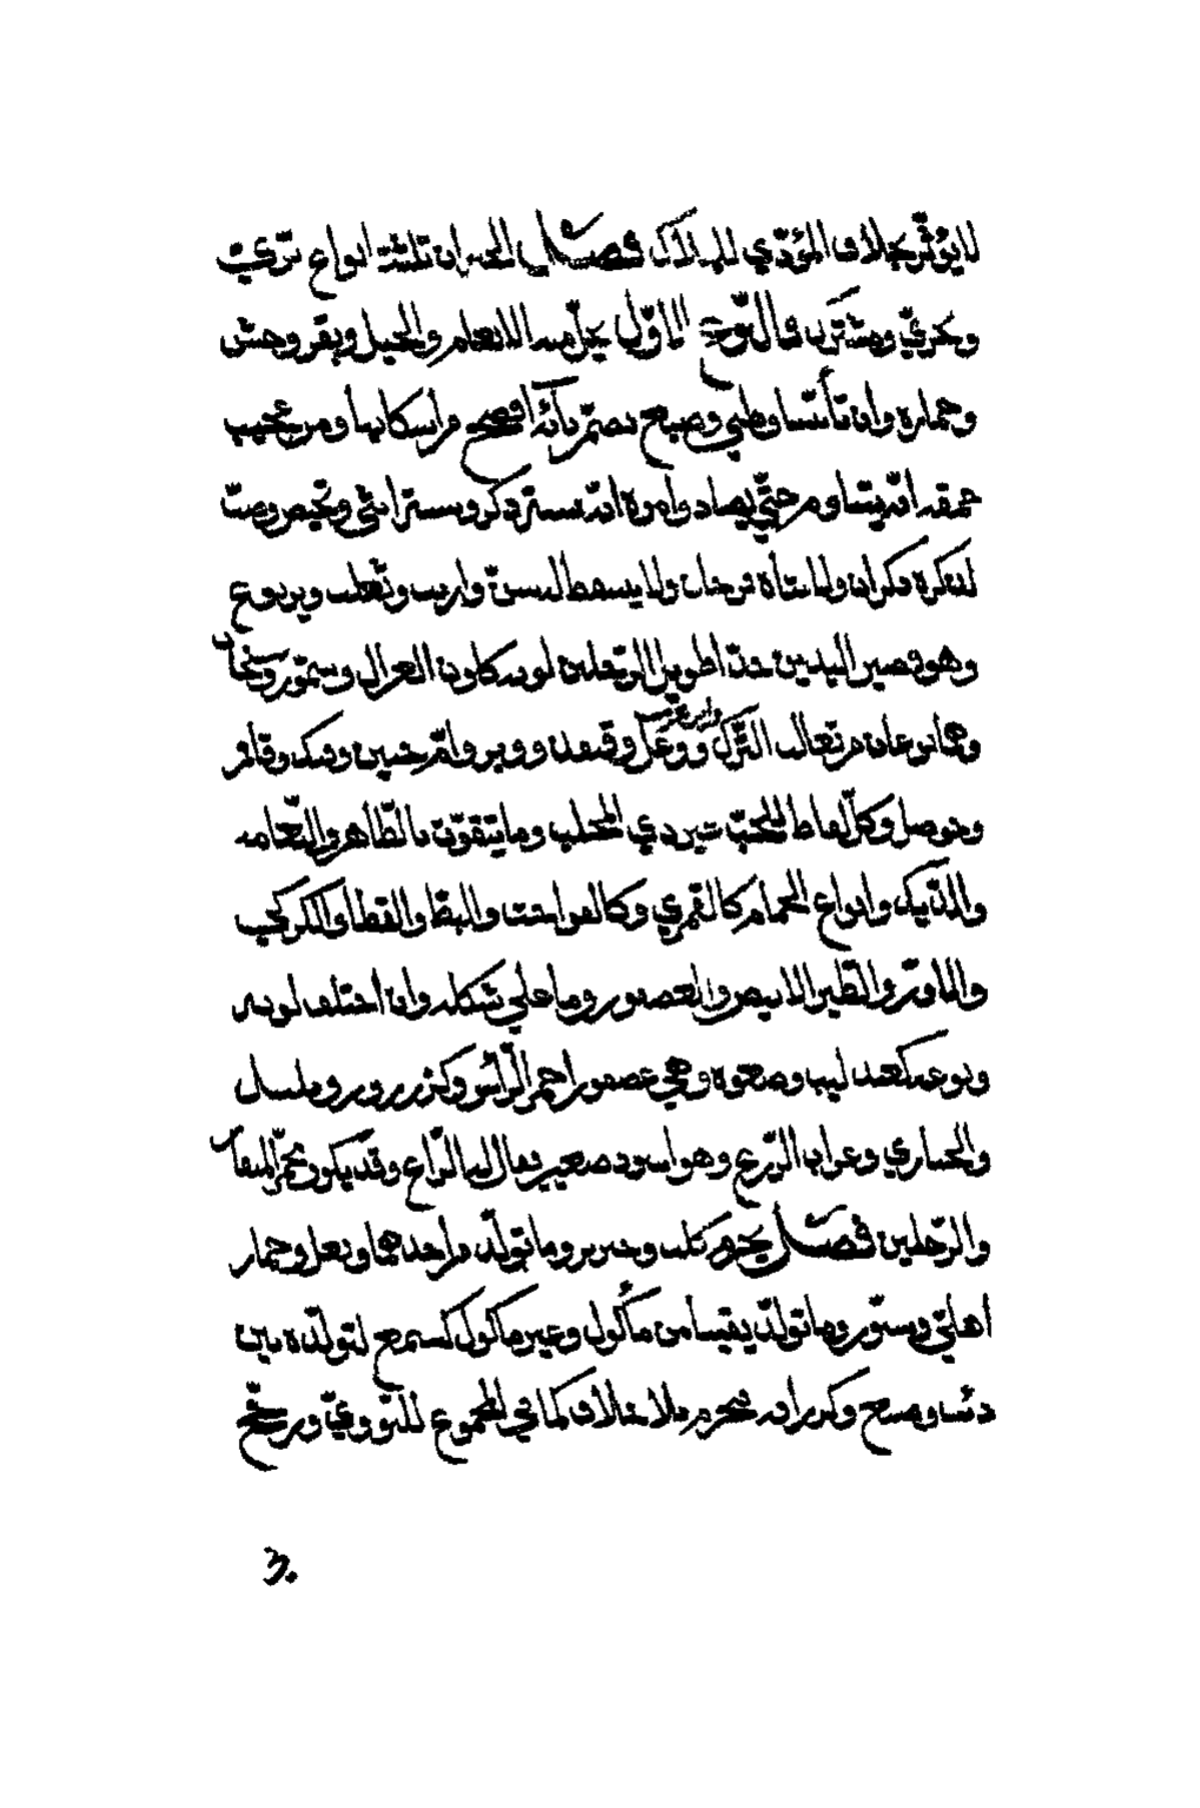 لا يؤثر بخلاف المؤدي للهلاك فصل الحيوان ثلثة انواع بري
وبحري ومشترك فالنوع الاول يحل منه الانعام والخيل وبقر وحش
وحماره وان تأنسا وظبي وضبع بضم بائه افصح من اسكانها ومن عجيب
حمقه انه يتناوم حتى يصاد وامره انه سنة ذكر وسنة انثى ويحيض وضب
لذكره ذكران ولانثاه فرجان ولا يسقط له سن وارنب وثعلب ويربوع
وهو قصير اليدين جدا طويل الرجلين لونه كلون الغزال وسمور وسنجاب
وهما نوعان من ثعالب الترك ووعل وقنفذ ووبر وام حبين وفنك وقاقم
وابن عرس
وحوصل وكل لقاط للحب غير ذي المخلب وما يتقوت بالطاهر والنعامه
والديك وانواع الحمام كالقمري وكالفواخت والبط والقطا والكركي
والاوز والطير الابيض والعصفور وما على شكله وان اختلف لونه
ونوعه كعندليب وصعوة وهي عصفور احمر الرأس وكزرزور وبلبل
والحبارى وغراب الزرع وهو اسود صغير يقال له الزاغ وقد يكون محمر المنقار
والرجلين فصل يحرم كلب وخنزير وما تولد من احدهما وبغل وحمار
اهلي وسنور وما تولد يقينا من مأكول وغير مأكول كسمع لتولده بين
ذئب وضبع وكزرافه فتحرم بلا خلاف كما في المجموع للنووي ورجح